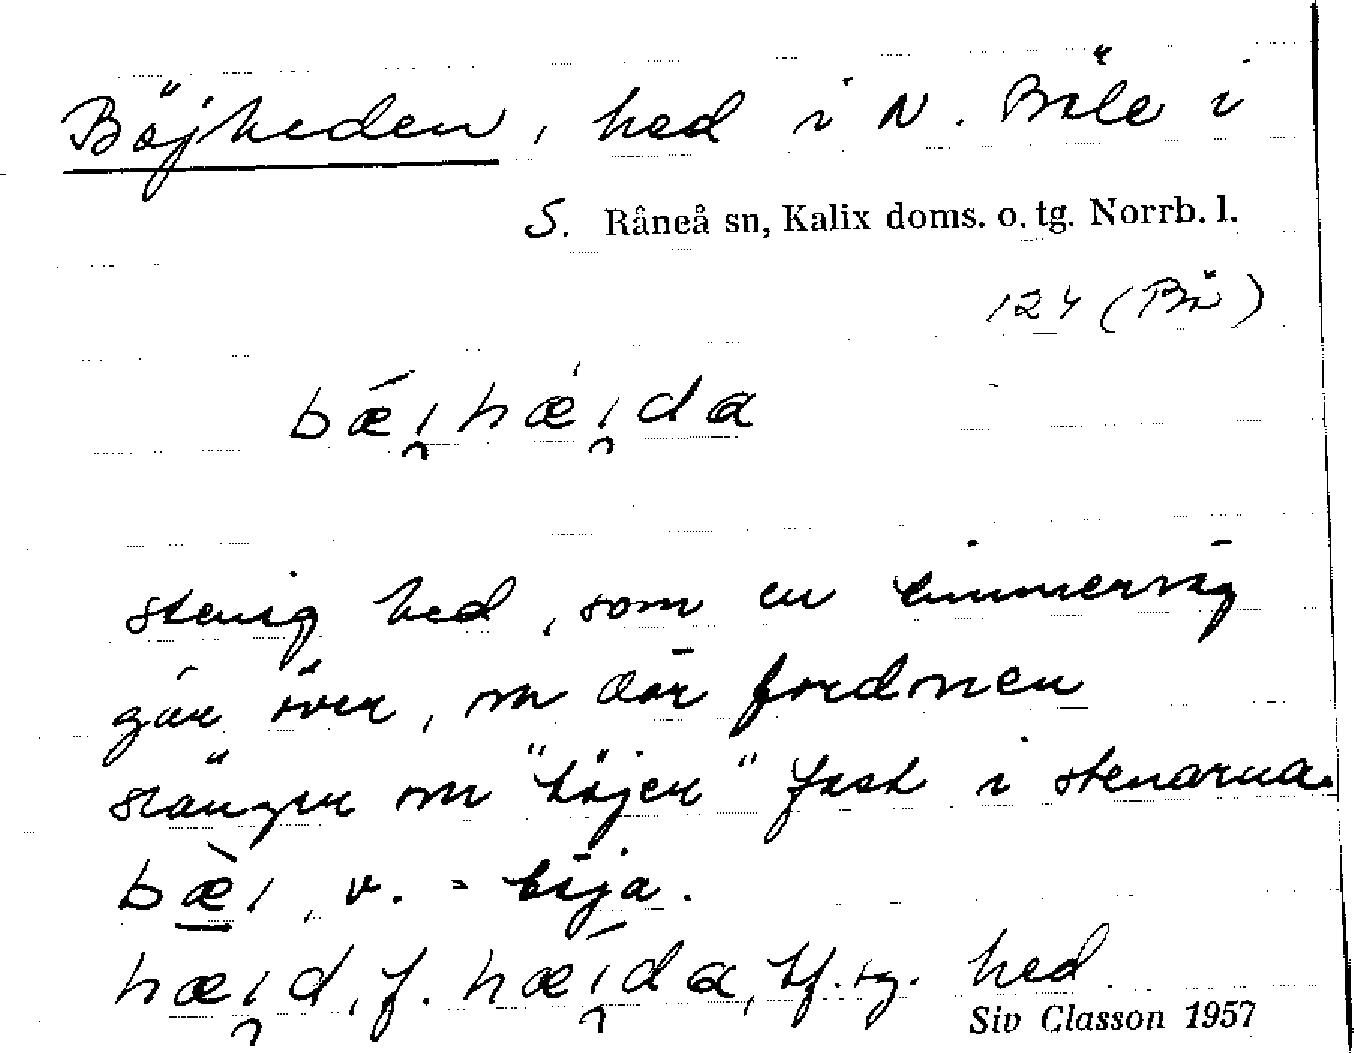 Böjheden, hed i N. Böle i
S. Råneå sn, Kalix doms. o. tg. Norrb. l.
124 (Bö)
bǽi̯hǽi̯da
stenig hed, som en timmerväg
går över, o där fordonen
slänger o "böjer" fast i stenarna.
bæ̀i, v. = böja.
hæi̯d, f. hǽi̯da, bf. sg. hed
Siv Classon 1957